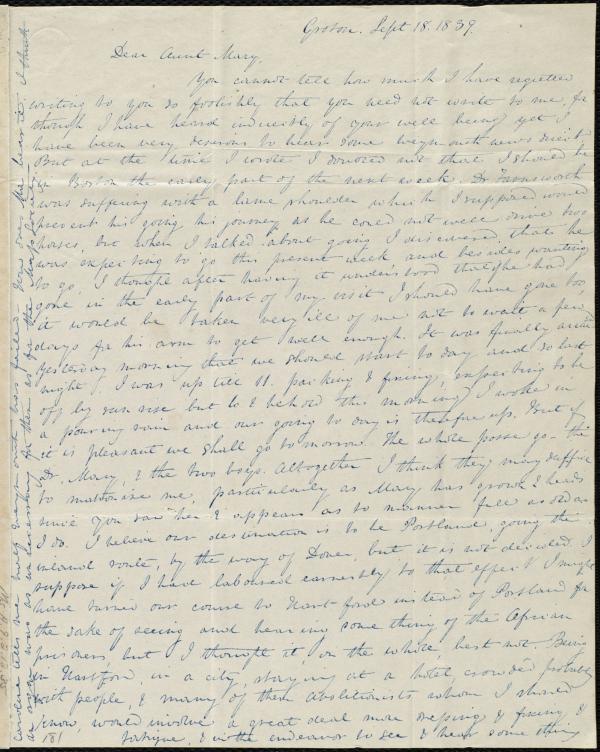 Groton. Sept 18. 1839.
Dear Aunt Mary,
You cannot tell how much I have regretted
writing to you so foolishly that you need not write to me, for
though I have heard indirectly of your well being yet I
have been very desirous to hear some Weymouth news direct.
But at the time I wrote I doubted not that I should be
in Boston the early part of the next week. Dr. Farnsworth
was suffering with a lame shoulder which I supposed would
prevent his going his journey, as he could not well drive two
horses, but when I talked about going I discovered that he
was expecting to go this present week, and besides wanting
to go, I thought after having it understood that if he had
gone in the early part of my visit I should have gone too,
it would be taken very ill of me not to wait a few
days for his arm to get well enough. It was finally
yesterday morning that we should start to day and so last
night I was up till 11. packing & fixing, expecting to be
off by sun rise but lo & behold this morning I woke in
a pouring rain and our going to day is therefore up. But if
it is pleasant we shall go to-morrow. The whole posse go - the
Dr. Mary, & the two boys. Altogether I think they may suffice
to matronize me, particularly as Mary has grown 2 heads
since you saw her & appears as to manner full as old as
I do. I believe our destination is to be Portland, going the
inland route, by the way of Dover, but it is not decided. I
suppose if I have laboured earnestly to that effect I might
have turned our course to Hartford instead of Portland for
the sake of seeing and hearing something of the African
prisoners, but I thought it, on the whole, best not. Being
in Hartford, in a city, staying at a hotel, crowded probably
with people, & many of them abolitionists whom I should
know, would involve a great deal more dressing & fixing &
fatigue, & in the endeavor to see & hear some thing
181
Caroline tells me